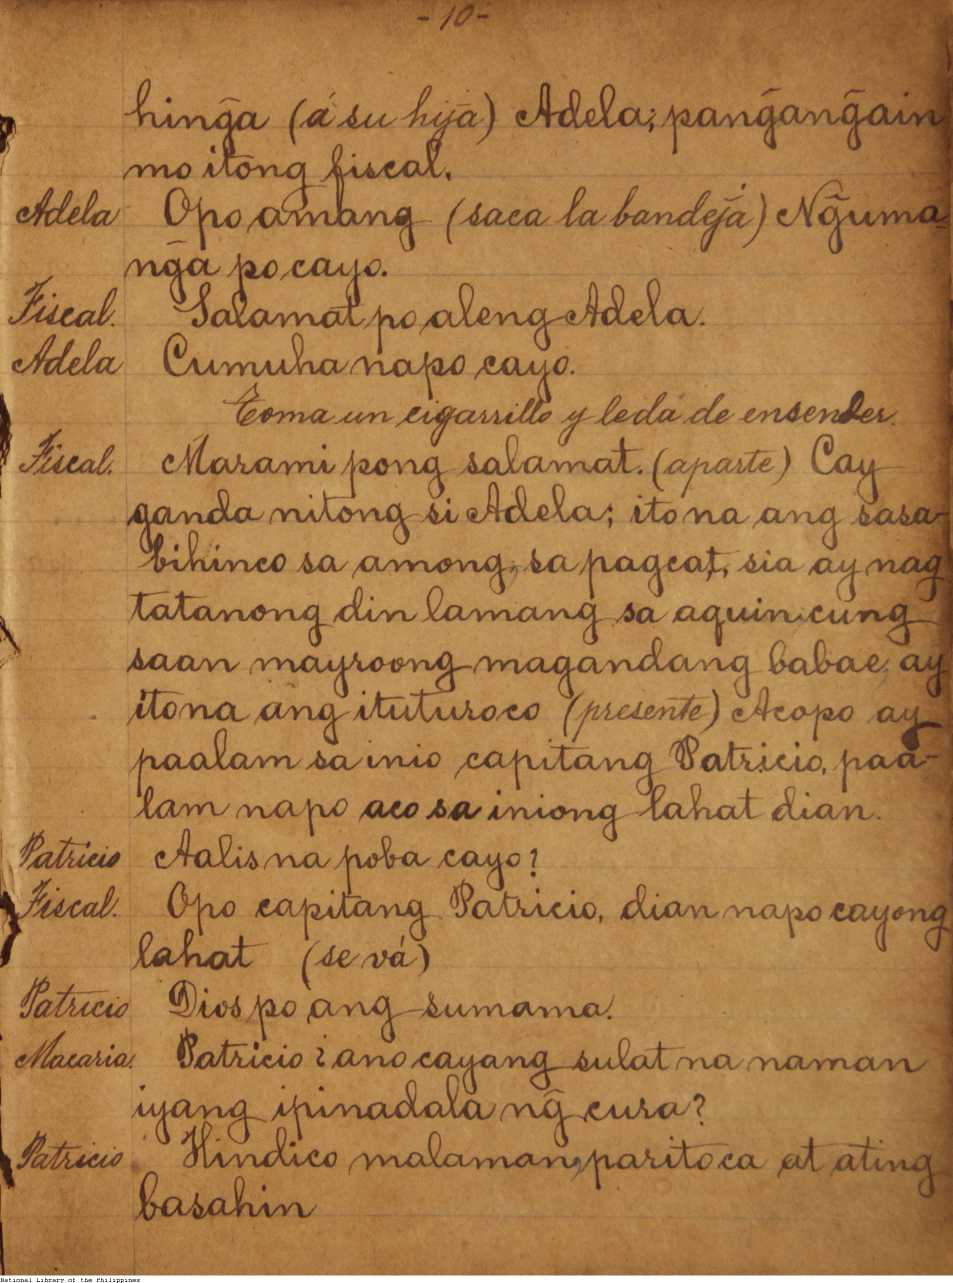 -10-
hing̃a (á su hija) Adela; pang̃ang̃ain
mo itong fiscal.
Adela Opo amang (saca la bandeja) Ng̃uma-
ng̃a po cayo.
Fiscal. Salamat po aleng Adela.
Adela Cumuha napo cayo.
Toma un cigarrillo y le da de ensender.
Fiscal. Marami pong salamat. (aparte) Cay
ganda nitong si Adela; ito na ang sasa-
bihinco sa among, sa pagcat, sia ay nag
tatanong din lamang sa aquin cung
saan mayroong magandang babae, ay
ito na ang ituturoco (presente) Aco po ay
paalam sa inio capitang Patricio, paa-
lam napo aco sa iniong lahat dian.
Patricio Aalis na poba cayo?
Fiscal. Opo capitang Patricio, dian napo cayong
lahat (se vá)
Patricio Dios po ang sumama.
Macaria. Patricio ¿ano cayang sulat na naman
iyang ipinadala ng̃ cura?
Patricio Hindico malaman, parito ca at ating
basahin
National Library of the Philippines